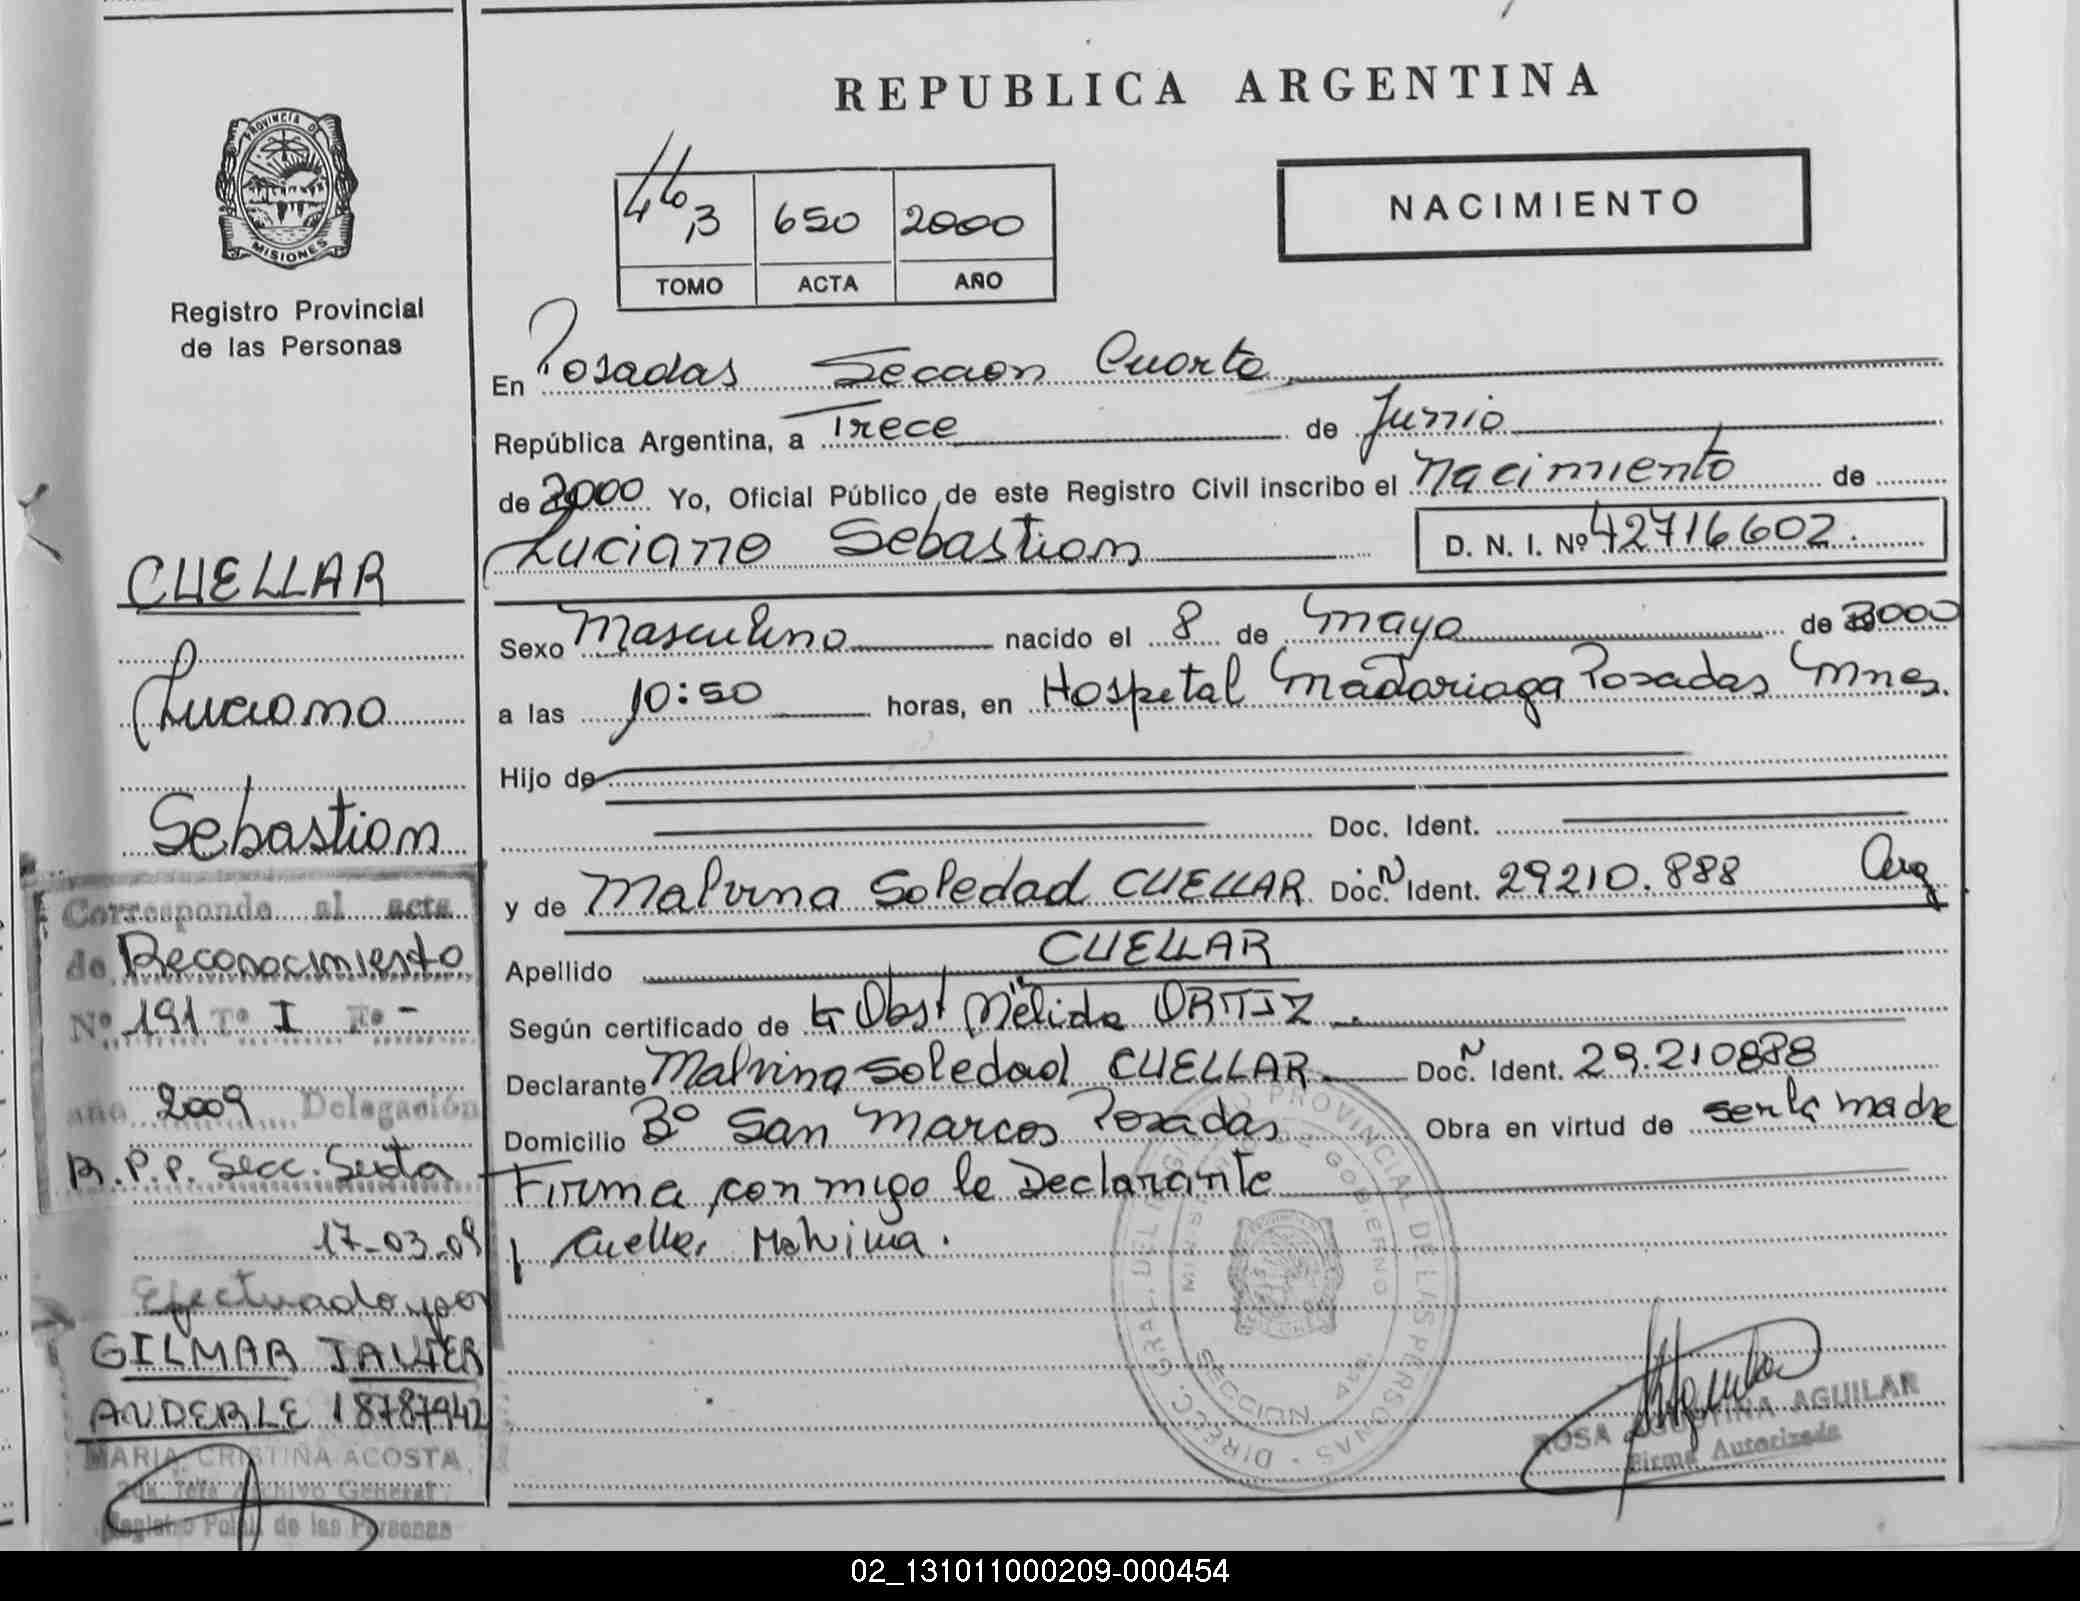 REPUBLICA ARGENTINA
PROVINCIA DE
MISIONES
Registro Provincial
de las Personas
650 2000
TOMO ACTA AÑO
NACIMIENTO
En Posadas Sección Cuarta
República Argentina, a Trece de Junio
de 2000 Yo, Oficial Público de este Registro Civil inscribo el Nacimiento de
Luciano Sebastian D. N. I. Nº 42716602.
Sexo Masculino nacido el 8 de Mayo de 2000
a las 10:50 horas, en Hospital Madariaga Posadas Mnes.
Hijo de
Doc. Ident.
y de Malvina Soledad CUELLAR Doc. Ident. 29210.888 Arg
Apellido CUELLAR
Según certificado de Obst Mélida ORTIZ
Declarante Malvina Soledad CUELLAR Doc. Ident. 29.210888
Domicilio Bº San Marcos Posadas Obra en virtud de ser la madre
Firma conmigo la Declarante
Cuellar Malvina.
CUELLAR
Luciano
Sebastian
Corresponde al acta
de Reconocimiento
Nº 191 Tº I Fº -
año 2009 Delegación
R.P.P. Secc. Sexta
17-03-09
Efectuado por
GILMAR JAVIER
ANDERLE 18787942
MARIA CRISTINA ACOSTA
Archivo General
de las Personas
DIREC. GRAL. DEL REGISTRO PROVINCIAL DE LAS PERSONAS
GOBIERNO
SECCION 4ta.
ROSA AGUSTINA AGUILAR
Firma Autorizada
02_131011000209-000454